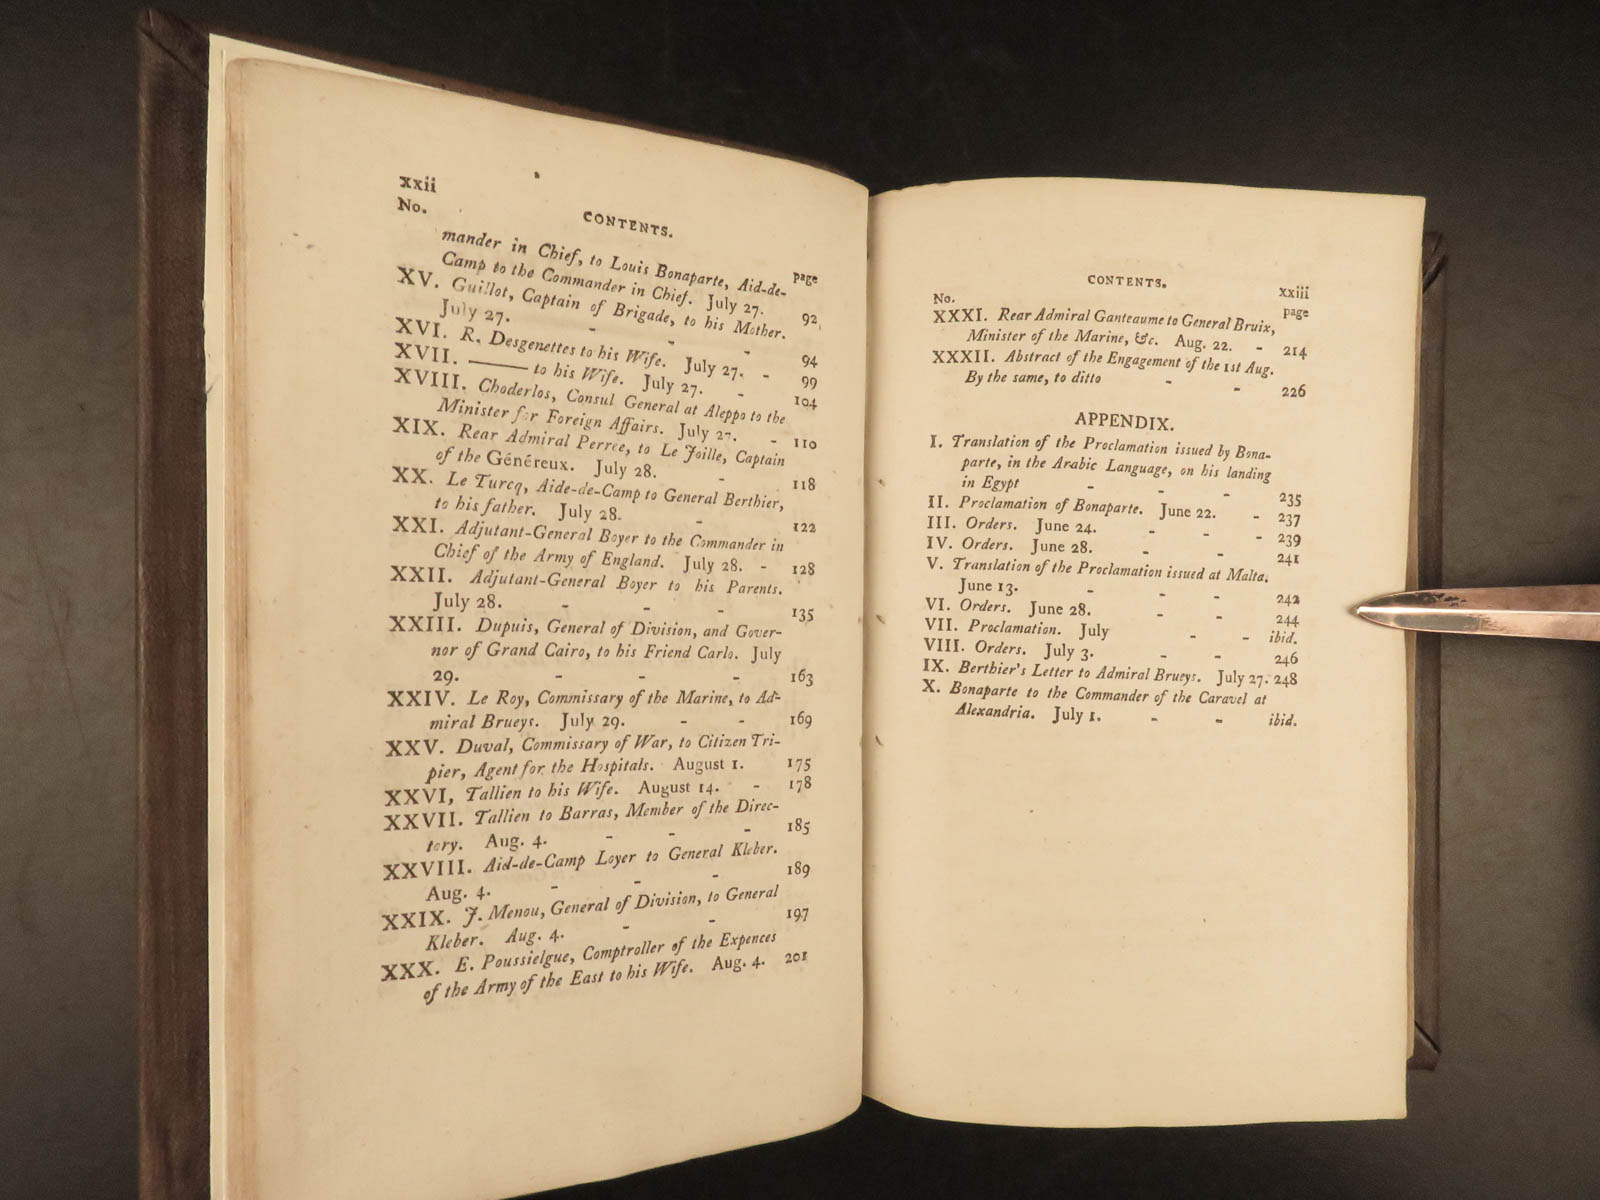 xxii
CONTENTS.
No.
page
mander in Chief, to Louis Bonaparte, Aid-de-
Camp to the Commander in Chief. July 27. 92
XV. Guillot, Captain of Brigade, to his Mother.
July 27. - - - 94
XVI. R. Desgenettes to his Wife. July 27. - 99
XVII. ——— to his Wife. July 27. - 104
XVIII. Choderlos, Consul General at Aleppo to the
Minister for Foreign Affairs. July 27. - 110
XIX. Rear Admiral Perrée, to Le Joille, Captain
of the Généreux. July 28. - 118
XX. Le Turcq, Aide-de-Camp to General Berthier,
to his father. July 28. - 122
XXI. Adjutant-General Boyer to the Commander in
Chief of the Army of England. July 28. - 128
XXII. Adjutant-General Boyer to his Parents.
July 28. - - - 135
XXIII. Dupuis, General of Division, and Gover-
nor of Grand Cairo, to his Friend Carlo. July
29. - - - 163
XXIV. Le Roy, Commissary of the Marine, to Ad-
miral Brueys. July 29. - - 169
XXV. Duval, Commissary of War, to Citizen Tri-
pier, Agent for the Hospitals. August 1. 175
XXVI, Tallien to his Wife. August 14. - 178
XXVII. Tallien to Barras, Member of the Direc-
tory. Aug. 4. - - - 185
XXVIII. Aid-de-Camp Loyer to General Kleber.
Aug. 4. - - - 189
XXIX. J. Menou, General of Division, to General
Kleber. Aug. 4. - - 197
XXX. E. Poussielgue, Comptroller of the Expences
of the Army of the East to his Wife. Aug. 4. 201
CONTENTS.
xxiii
No.
page
XXXI. Rear Admiral Ganteaume to General Bruix,
Minister of the Marine, &c. Aug. 22. - 214
XXXII. Abstract of the Engagement of the 1st Aug.
By the same, to ditto - - 226
APPENDIX.
I. Translation of the Proclamation issued by Bona-
parte, in the Arabic Language, on his landing
in Egypt - - - 235
II. Proclamation of Bonaparte. June 22. - 237
III. Orders. June 24. - - - 239
IV. Orders. June 28. - - 241
V. Translation of the Proclamation issued at Malta.
June 13. - - - 242
VI. Orders. June 28. - - 244
VII. Proclamation. July - - ibid.
VIII. Orders. July 3. - - 246
IX. Berthier's Letter to Admiral Brueys. July 27. 248
X. Bonaparte to the Commander of the Caravel at
Alexandria. July 1. - - ibid.